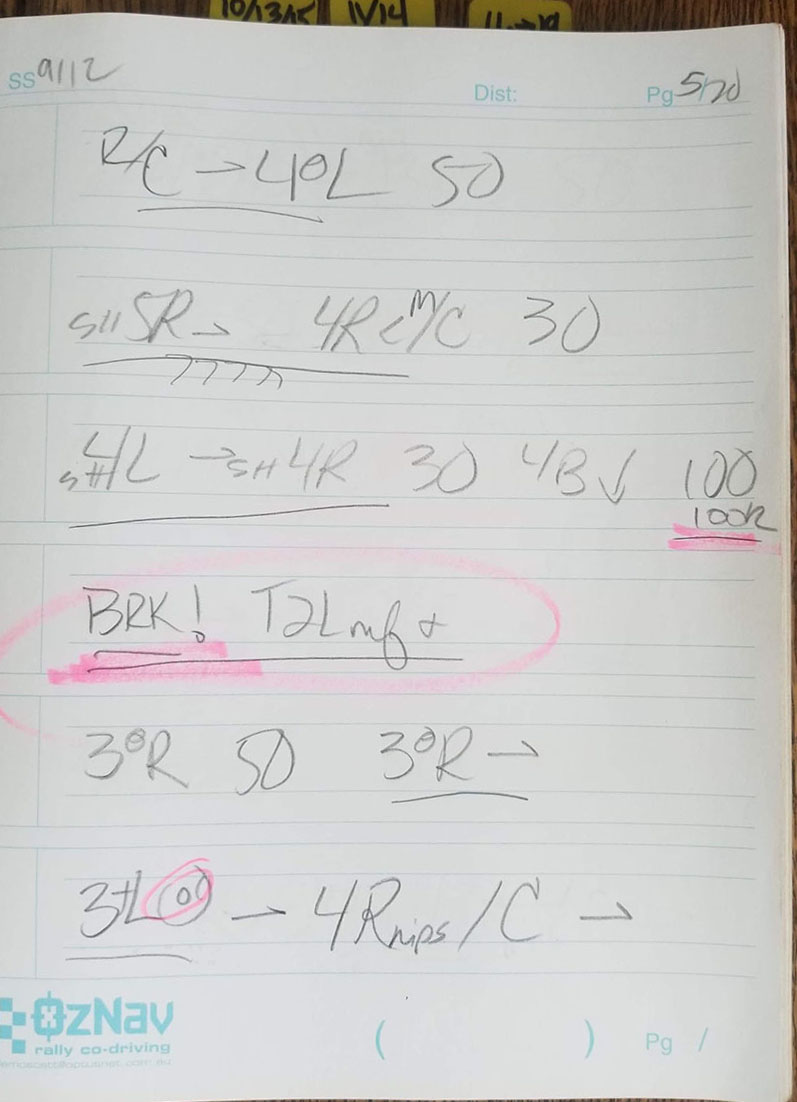 10/13/15 11/14
SS 9112 Dist: Pg 5/20
R/C → 4⁰L 50
SH 5R → 4R < M/C 30
SH 4L → SH 4R 30 4B ↓ 100
100R
BRK! T2L
3⁰R 50 3⁰R →
3+L → 4R nips /C →
OzNav
rally co-driving
( ) Pg /